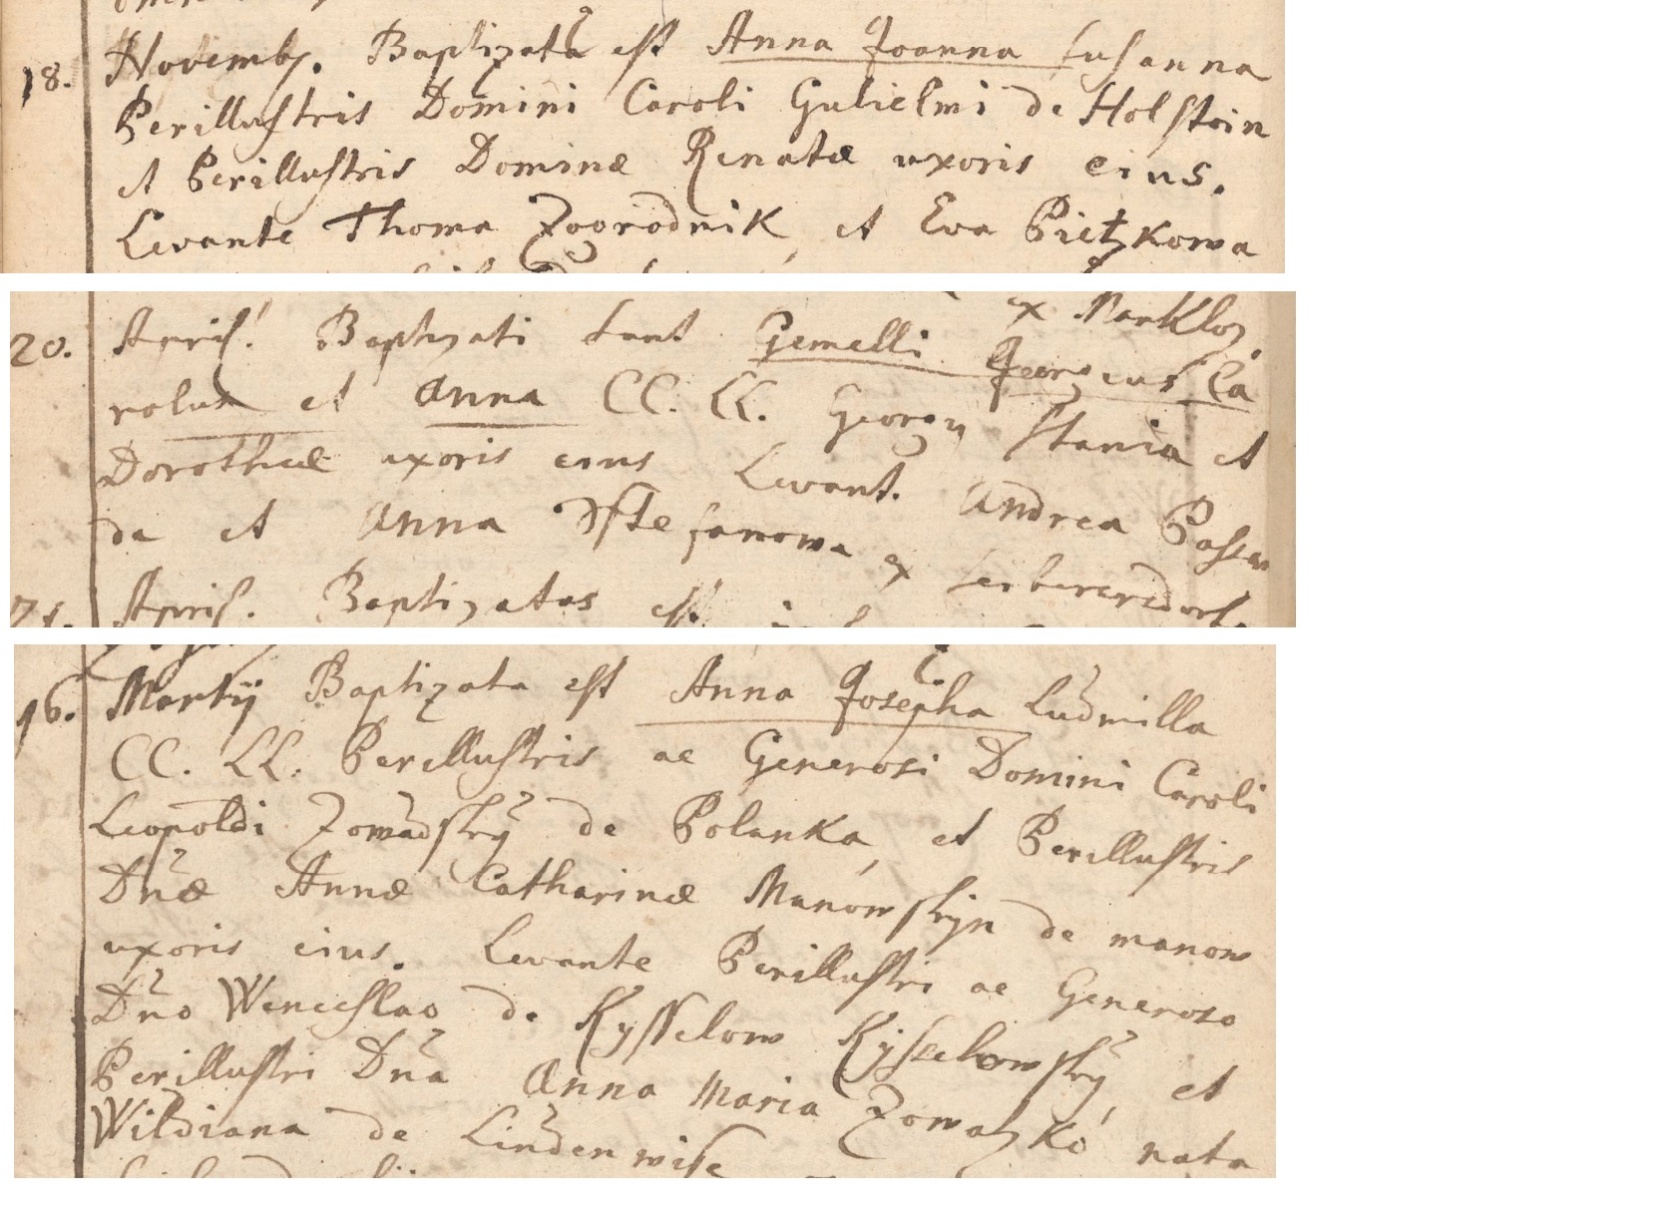 18. Novemb. Baptizata est Anna Joanna Susanna
Perillustris Domini Caroli Gulielmi de Holstein
et Perillustris Dominæ Renatæ uxoris eius.
Levante Thoma Zogrodnik, et Eva Pietzkowa
ex Marklo
20. April: Baptizati sunt Gemelli Georgius Ca
rolus et Anna CC. LL. Georgy Stania et
Dorotheæ uxoris eius Levant. Andrea
da et Anna ex
April. Baptizatus est
16. Martÿ Baptizata est Anna Josepha Ludmilla
CC. LL. Perillustris ac Generosi Domini Caroli
Leopoldi Zowadský de Polanka, et Perillustris
Dnæ Annæ Catharinæ Manowskÿn de manow
uxoris eius. Levante Perillustri ac Generoso
Dno Wenceslao de Kysselow Kyselowský, et
Perillustri Dna Anna Maria Zowatzko nata
Wildiana de Lindenwise